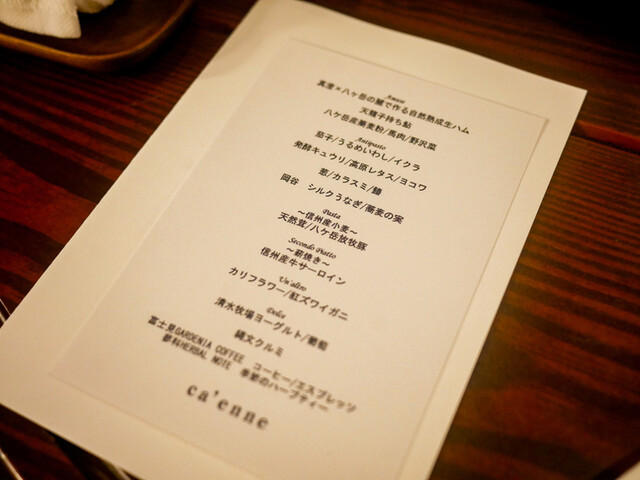 Amuse
真澄×八ヶ岳の麓で作る自然熟成生ハム
天龍子持ち鮎
八ケ岳産蕎麦粉/馬肉/野沢菜
Antipasto
茄子/うるめいわし/イクラ
発酵キュウリ/高原レタス/ヨコワ
葱/カラスミ/鱈
岡谷 シルクうなぎ/蕎麦の実
Pasta
～信州産小麦～
天然茸/八ケ岳放牧豚
Secondo Piatto
～薪焼き～
信州産牛サーロイン
Un'altro
カリフラワー/紅ズワイガニ
Dolce
清水牧場ヨーグルト/葡萄
縄文クルミ
富士見GARDENIA COFFEE コーヒー/エスプレッソ
蓼科HERBAL NOTE 季節のハーブティー
ca'enne